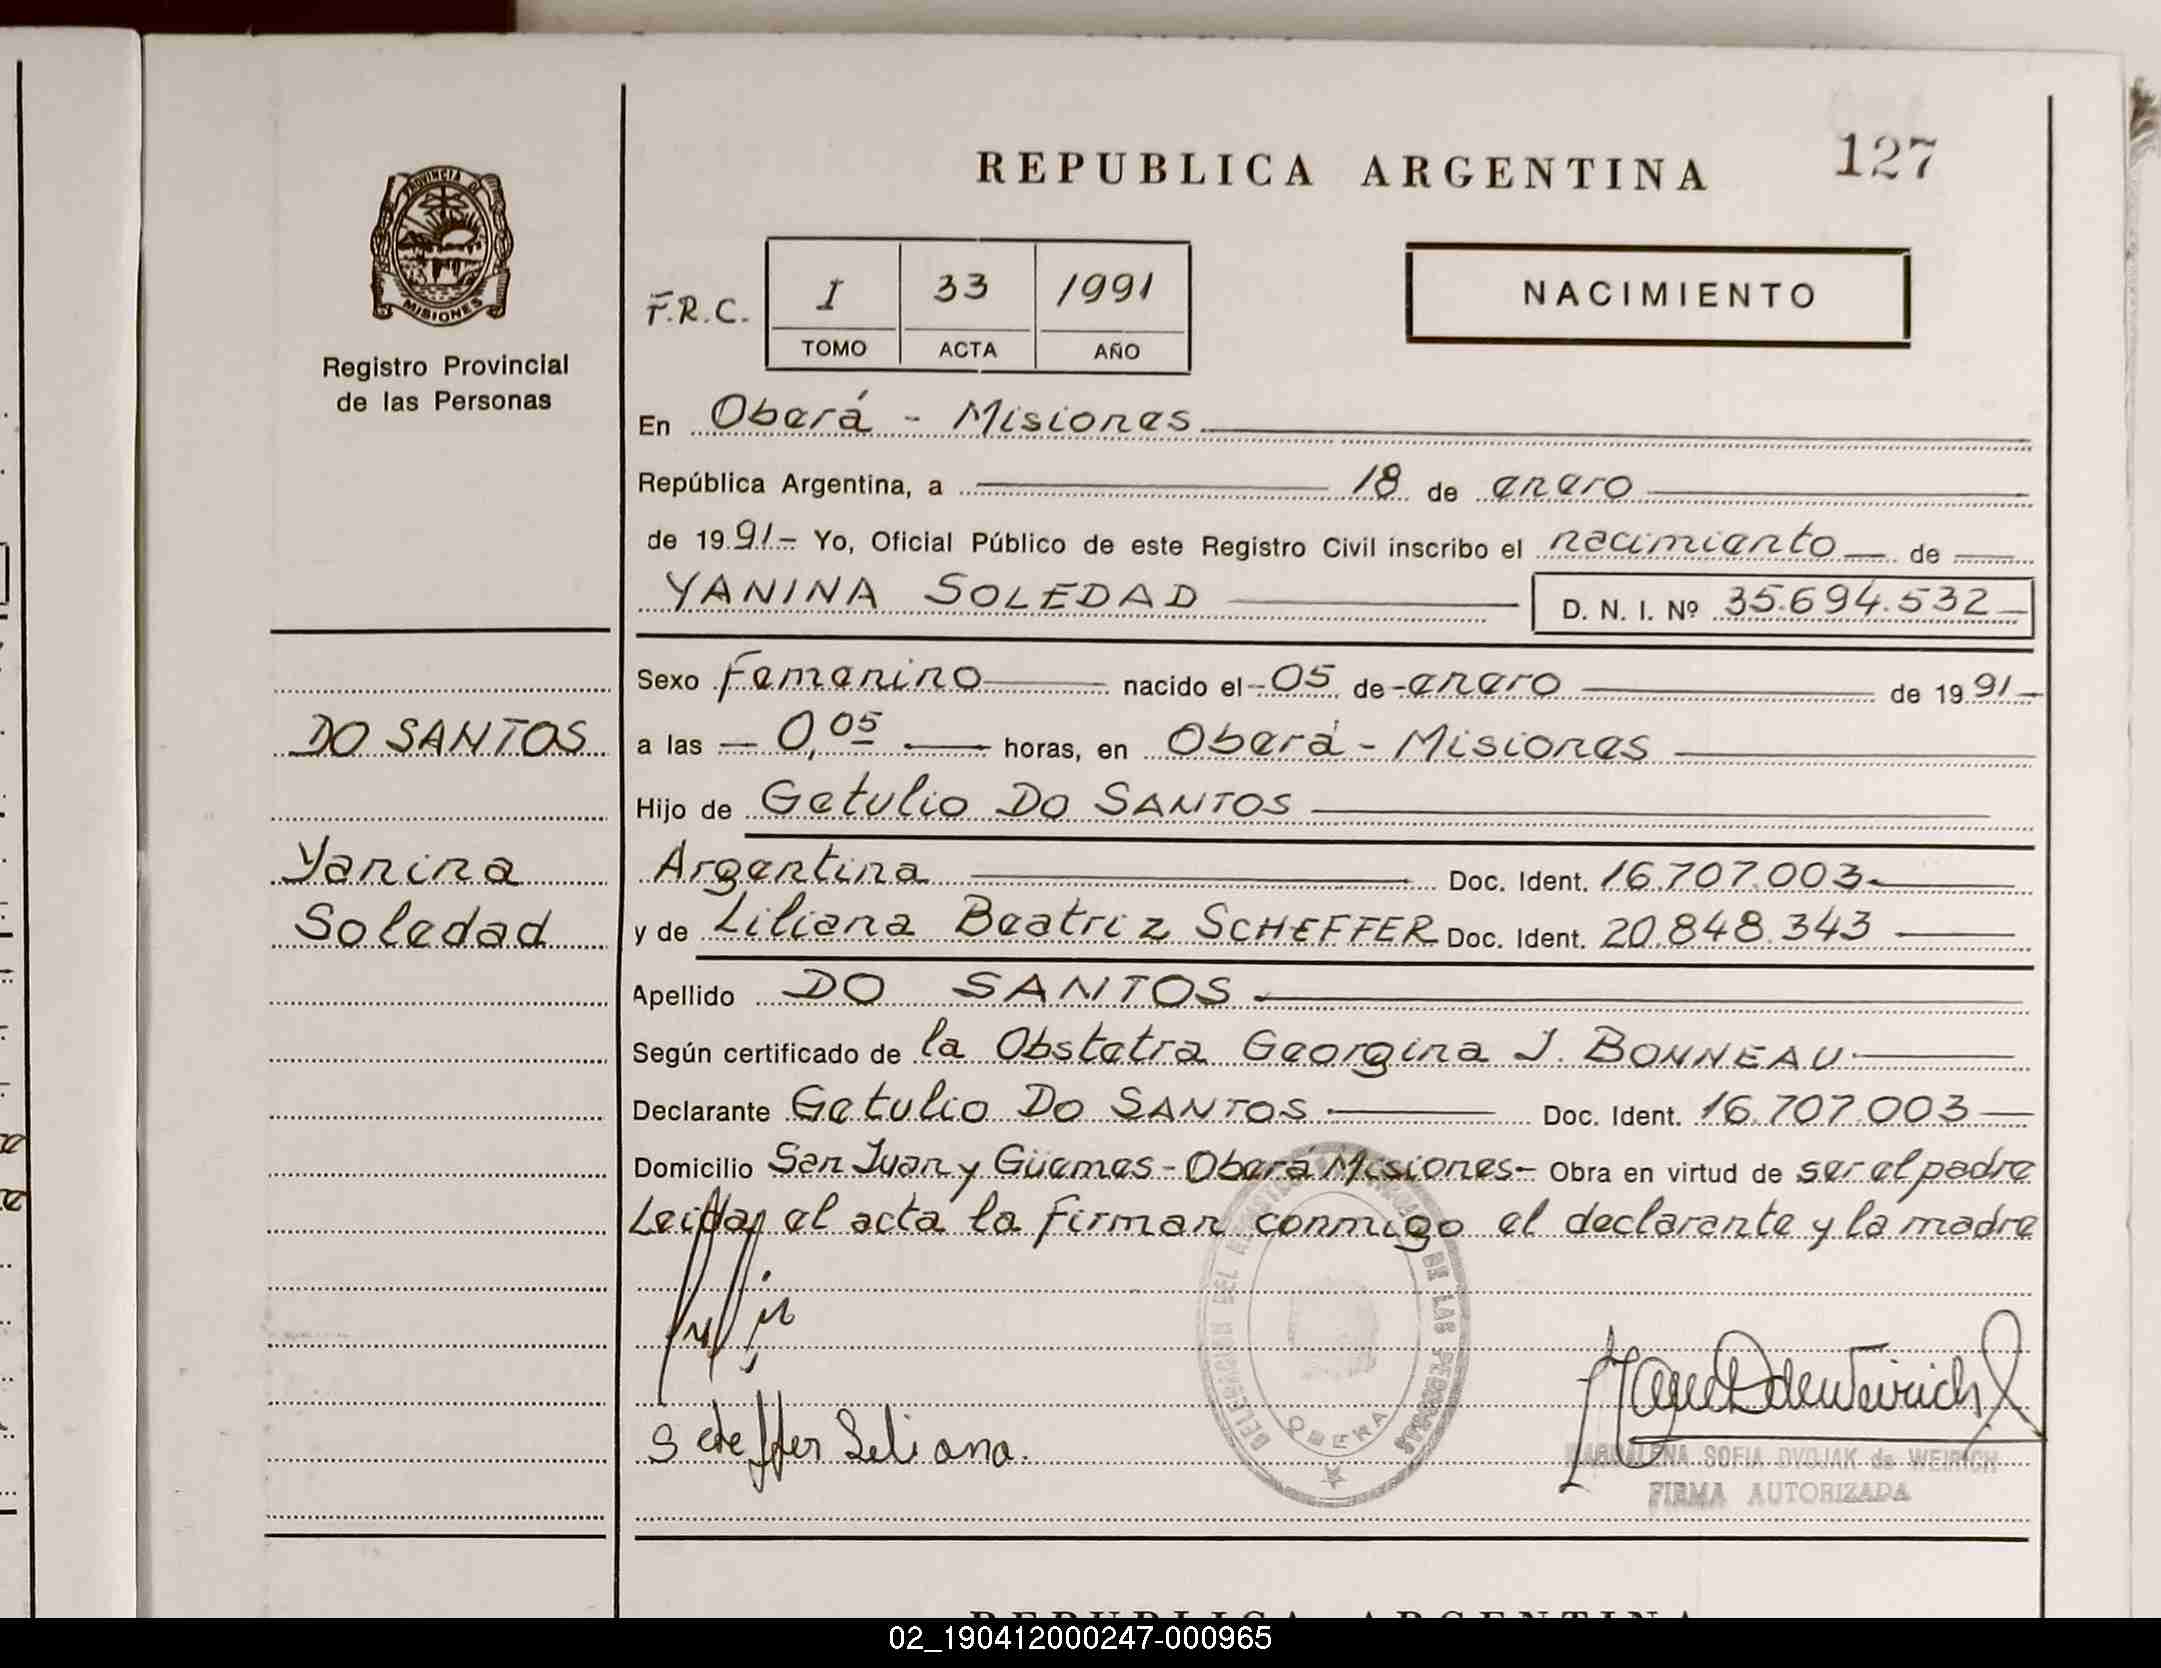 REPUBLICA ARGENTINA
127
PROVINCIA DE
MISIONES
Registro Provincial
de las Personas
F.R.C.
I 33 1991
TOMO ACTA AÑO
NACIMIENTO
En Oberá - Misiones
República Argentina, a 18 de enero
de 1991 - Yo, Oficial Público de este Registro Civil inscribo el nacimiento de
YANINA SOLEDAD D. N. I. Nº 35.694.532
Sexo Femenino nacido el 05 de enero de 1991
a las 0,05 horas, en Oberá - Misiones
Hijo de Getulio DO SANTOS
Argentina Doc. Ident. 16.707.003
y de Liliana Beatriz SCHEFFER Doc. Ident. 20.848.343
Apellido DO SANTOS
Según certificado de la Obstetra Georgina J. BONNEAU
Declarante Getulio DO SANTOS Doc. Ident. 16.707.003
Domicilio San Juan y Güemes - Oberá Misiones - Obra en virtud de ser el padre
Leída el acta la firman conmigo el declarante y la madre
DO SANTOS
Yanina
Soledad
Scheffer Liliana.
DELEGACION DEL REGISTRO DE LAS PERSONAS
OBERA
MAGDALENA SOFIA DVOJAK de WEIRICH
FIRMA AUTORIZADA
REPUBLICA ARGENTINA
02_190412000247-000965